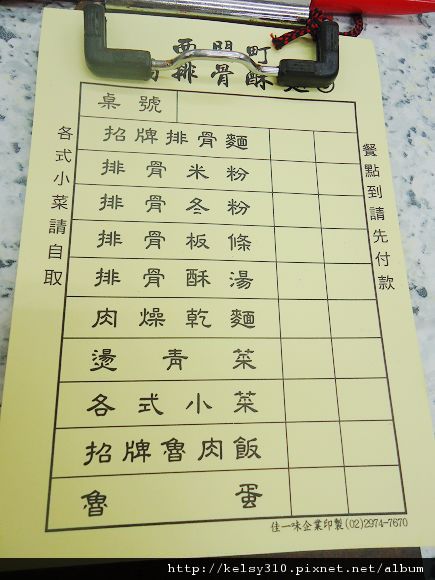 西門町
排骨酥麵
桌號
招牌排骨麵
排骨米粉
排骨冬粉
排骨板條
排骨酥湯
肉燥乾麵
燙青菜
各式小菜
招牌魯肉飯
魯蛋
各式小菜請自取
餐點到請先付款
佳一味企業印製(02)2974-7670
http://kelsy310.pixnet.net/album